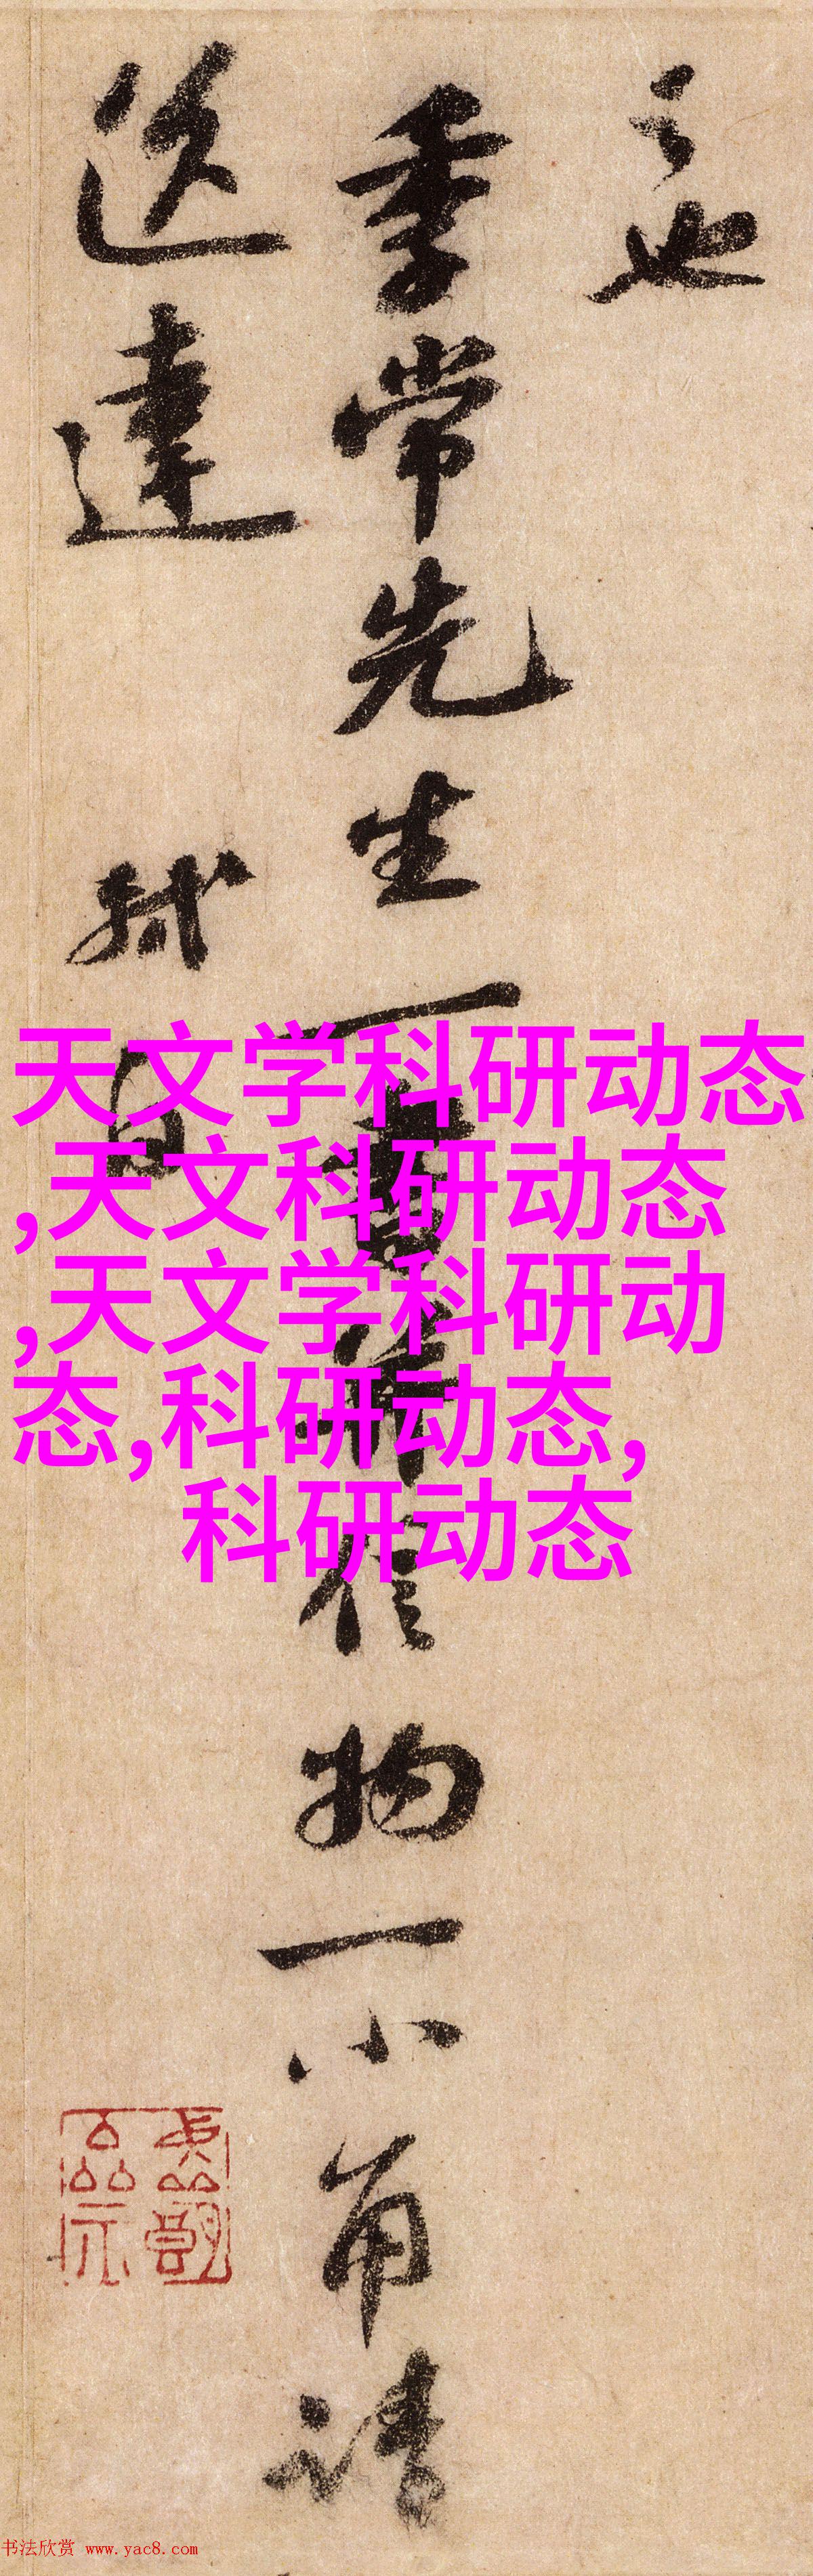 之也
季常先生一書并信物一小角請
送達 軾白
天文学科研动态
,天文科研动态
,天文学科研动
态,科研动态,
科研动态
书法欣赏 www.yac8.com